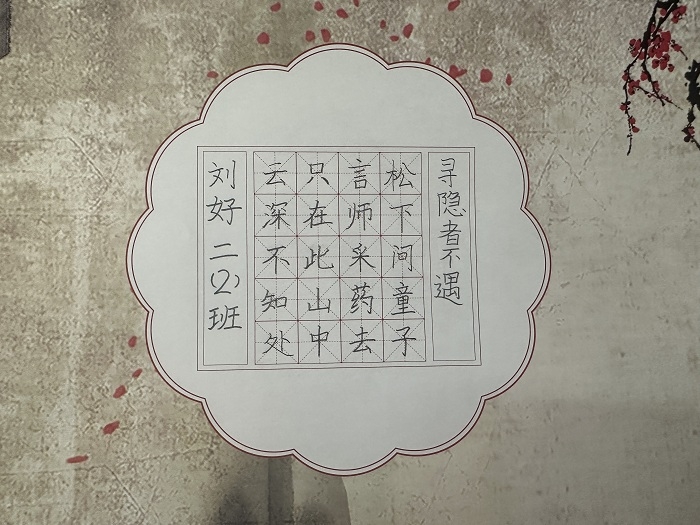 寻隐者不遇
松下问童子
言师采药去
只在此山中
云深不知处
刘好 二(2)班